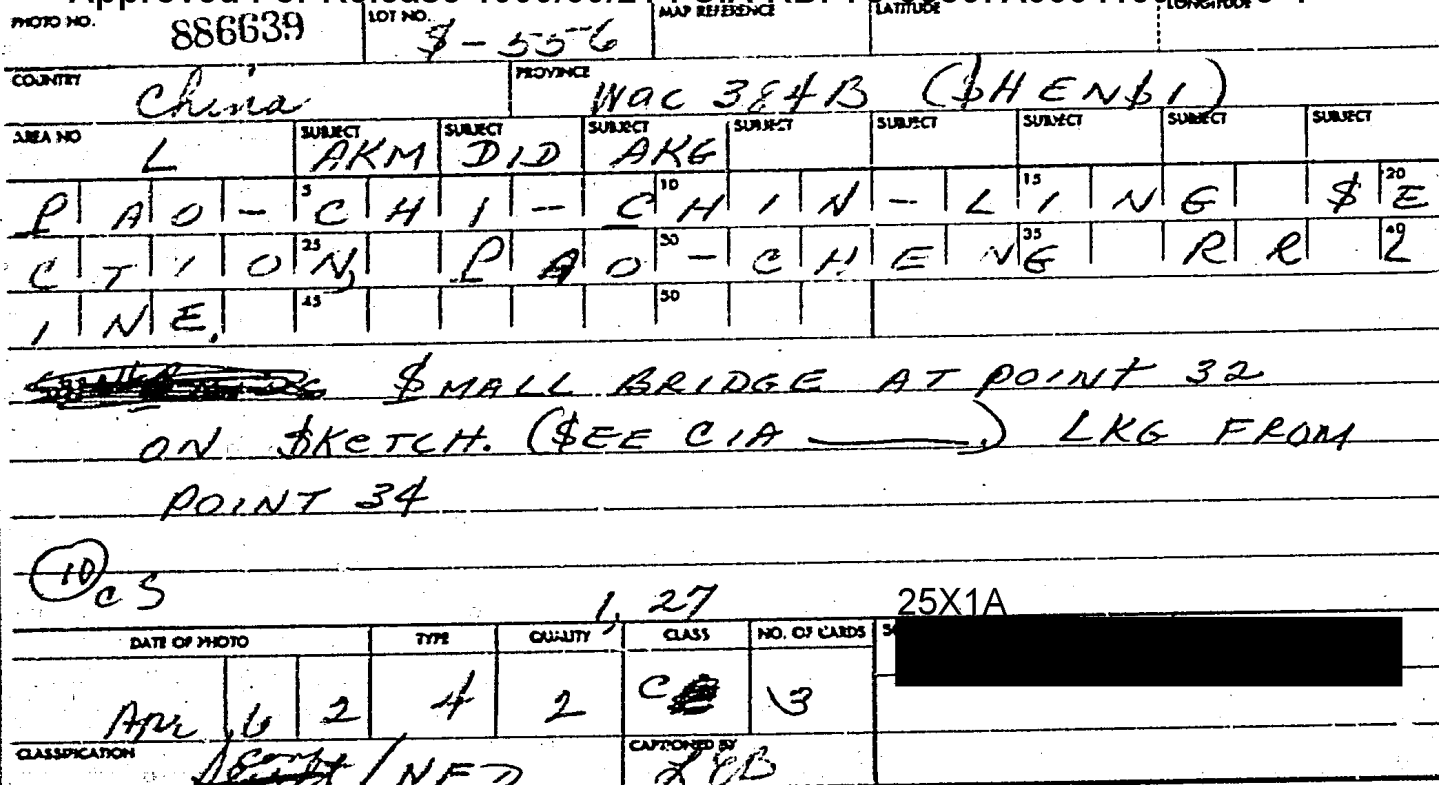 Approved For Release
PHOTO NO. 886639 LOT NO. $-556 MAP REFERENCE LATITUDE LONGITUDE
COUNTRY China PROVINCE WAC 384B ($HEN$I)
AREA NO L SUBJECT AKM SUBJECT DID SUBJECT AKG SUBJECT SUBJECT SUBJECT SUBJECT SUBJECT
5 10 15 20
PAO-CHI-CHIN-LING $E
25 30 35 40
CTION, PAO-CHENG RR L
45 50
INE.
$MALL BRIDGE AT POINT 32
ON $KETCH. ($EE CIA ———.) LKG FROM
POINT 34
10 CS
1, 27 25X1A
DATE OF PHOTO TYPE QUALITY CLASS NO. OF CARDS
Apr 6 2 4 2 C 3
CLASSIFICATION / NFD CAPTIONED BY